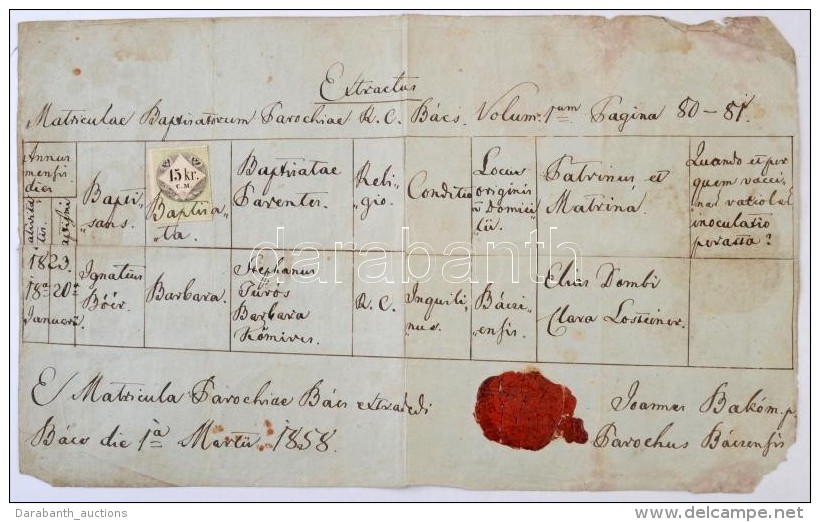 Extractus
Matriculae Baptisatorum Parochiae R. C. Bács. Volum. 1um Pagina 80-81.
Annus
mensis
dies
Bapti-
sans.
15 kr.
C.M.
Baptisa-
ta.
Baptisatae
Parentes.
Reli-
gio.
Conditio
Locus
originis
a Domici-
lii.
Patrinus et
Matrina.
Quando et per
quem vacci-
inoculatio
peracta?
1823.
18a 20a
Januarii.
Ignatius
Bóér.
Barbara.
Stephanus
Túrós
Barbara
Kőmives.
R. C.
Inquili-
nus.
Bácsi-
ensis.
Elias Dombi
Clara Losteiner.
E Matricula Parochiae Bács extradedi
Bács die 1a Martii 1858.
Joannes Bakó m.p.
Parochus Bácsensis
darabanth
Darabanth_auctions
delcampe.net